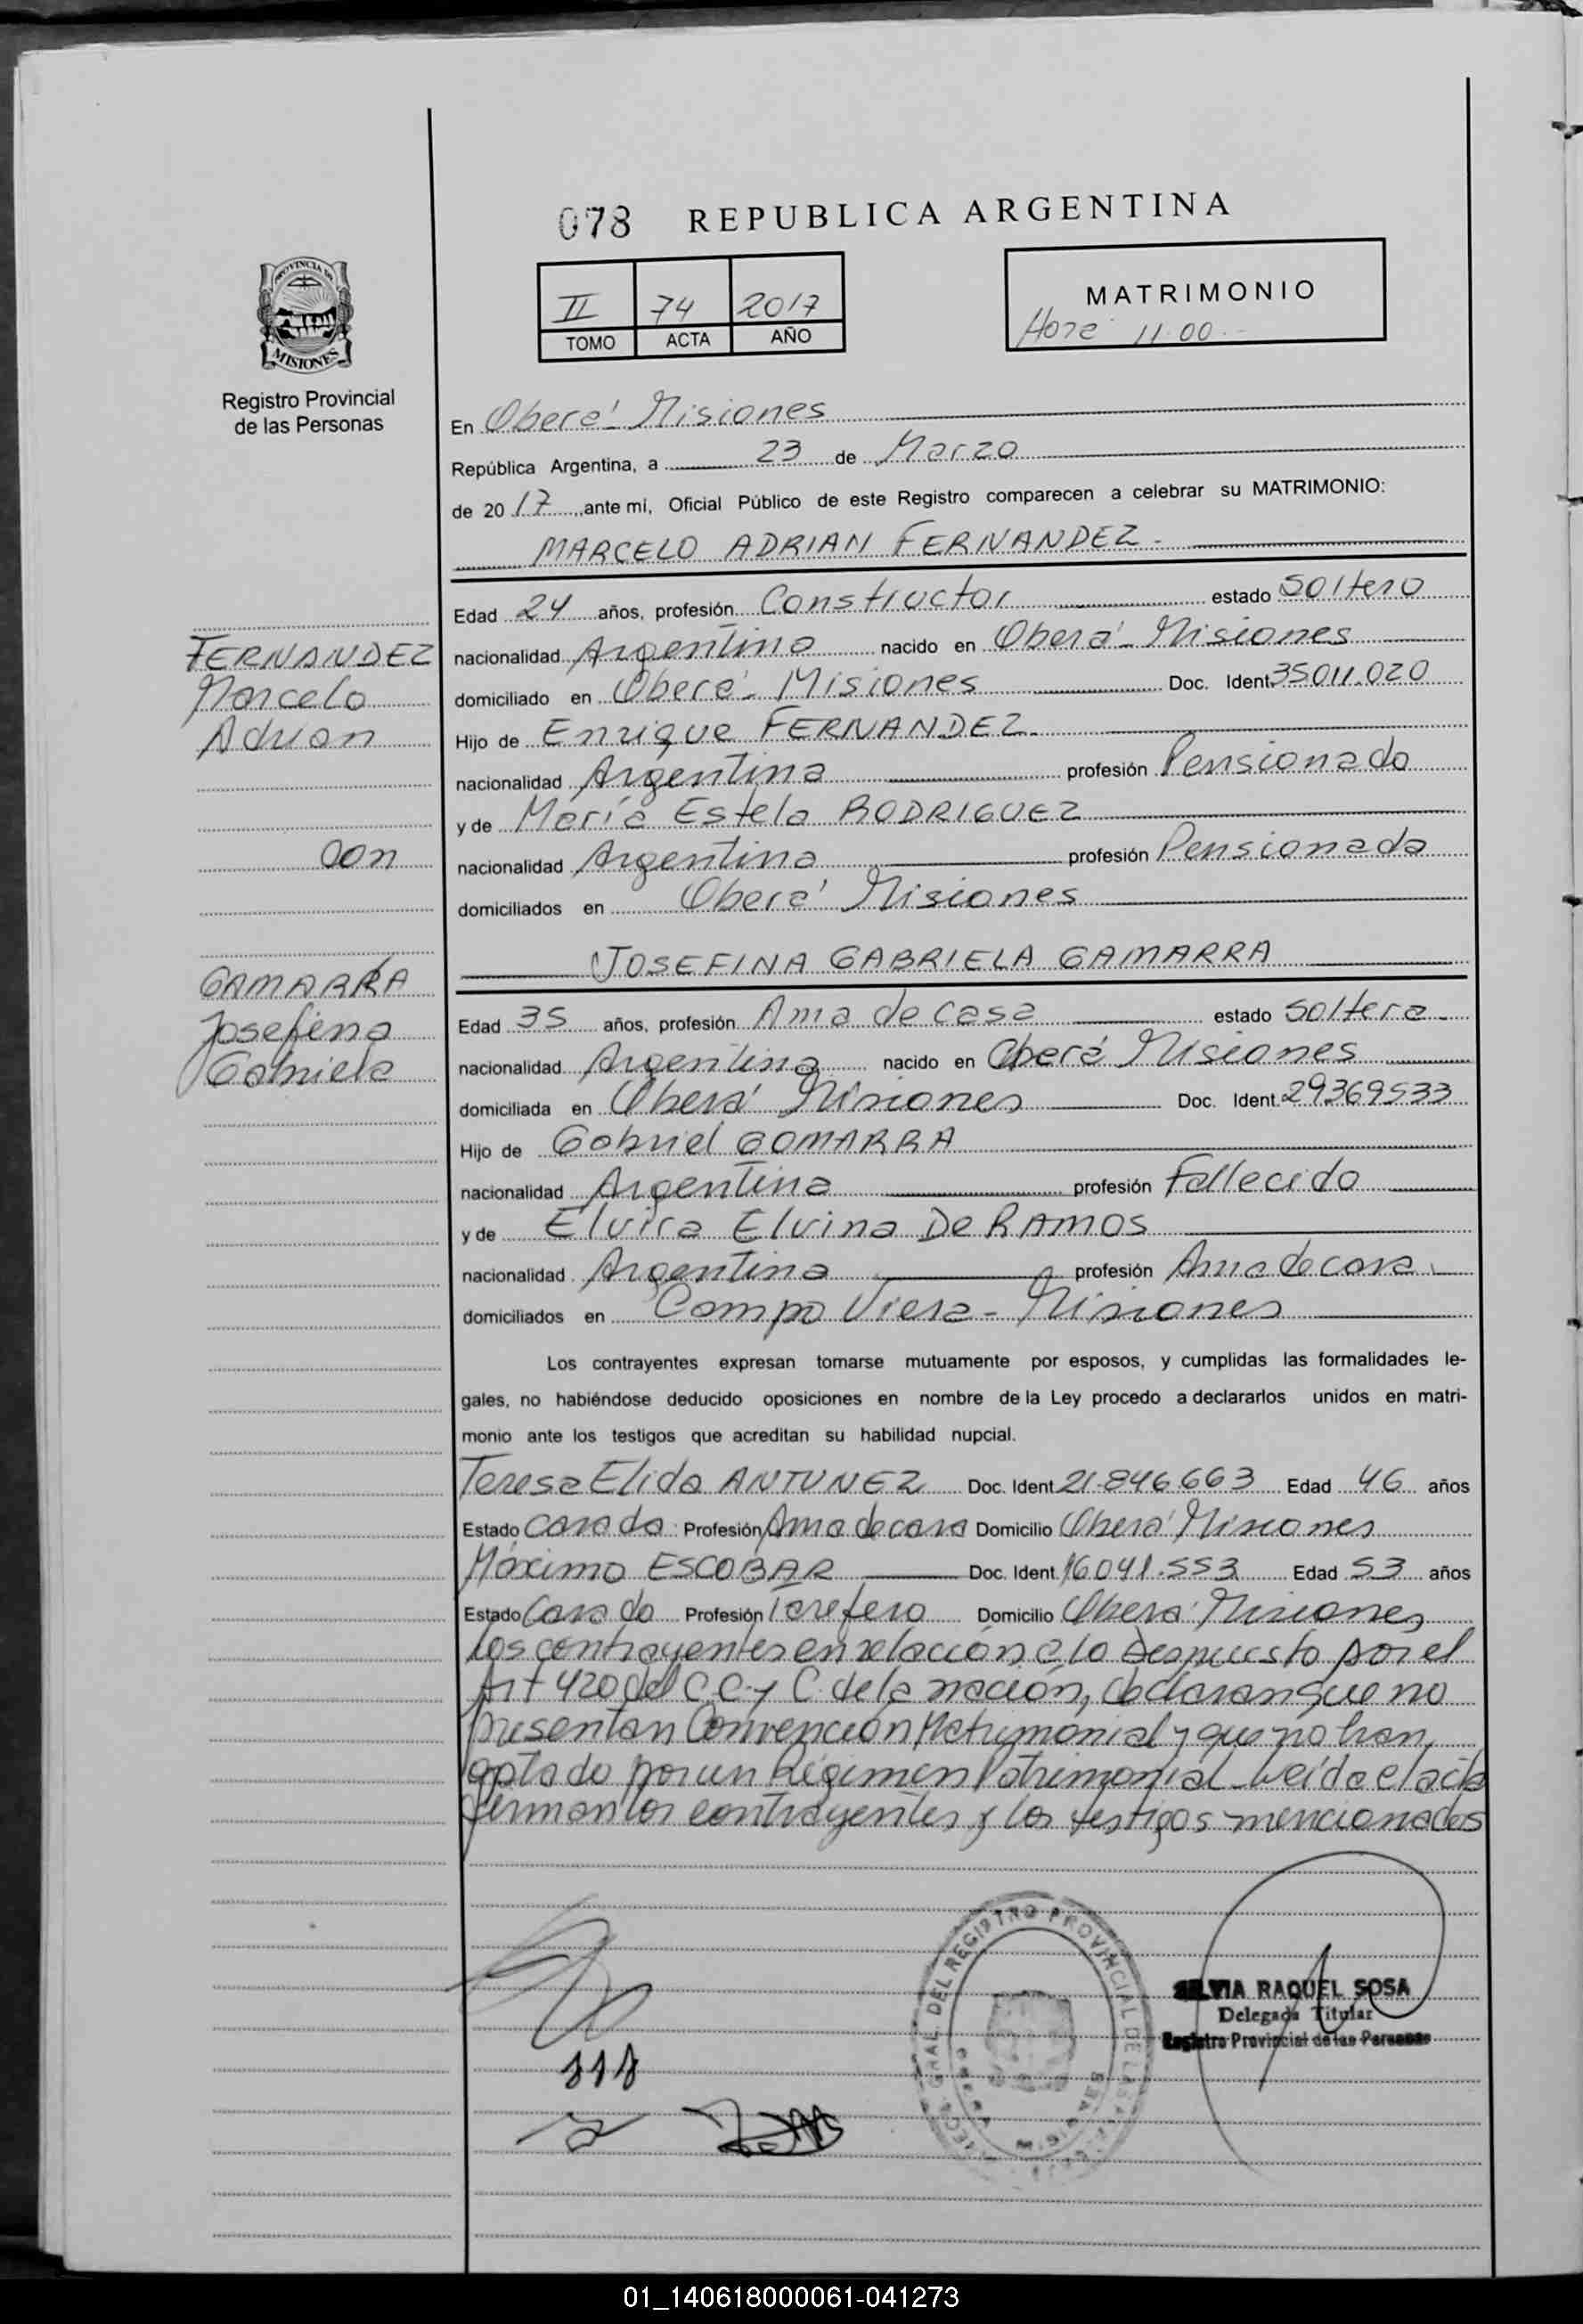 078 REPUBLICA ARGENTINA
PROVINCIA DE
MISIONES
Registro Provincial
de las Personas
II 74 2017
TOMO ACTA AÑO
MATRIMONIO
Hora 11.00.-
En Oberá Misiones
República Argentina, a 23 de Marzo
de 2017, ante mi, Oficial Público de este Registro comparecen a celebrar su MATRIMONIO:
MARCELO ADRIAN FERNANDEZ.-
Edad 24 años, profesión Constructor estado Soltero
nacionalidad Argentino nacido en Oberá - Misiones
domiciliado en Oberá - Misiones Doc. Ident. 35.011.020
Hijo de Enrique FERNANDEZ.-
nacionalidad Argentina profesión Pensionado
y de María Estela RODRIGUEZ
nacionalidad Argentina profesión Pensionada
domiciliados en Oberá Misiones
FERNANDEZ
Marcelo
Adrian
con
GAMARRA
Josefina
Gabriela
JOSEFINA GABRIELA GAMARRA
Edad 35 años, profesión Ama de casa estado Soltera.-
nacionalidad Argentina nacido en Oberá Misiones
domiciliada en Oberá Misiones Doc. Ident. 29369533
Hijo de Gabriel GOMARRA
nacionalidad Argentina profesión Fallecido
y de Elvira Elvina De RAMOS
nacionalidad Argentina profesión Ama de casa
domiciliados en Campo Viera - Misiones
Los contrayentes expresan tomarse mutuamente por esposos, y cumplidas las formalidades le-
gales, no habiéndose deducido oposiciones en nombre de la Ley procedo a declararlos unidos en matri-
monio ante los testigos que acreditan su habilidad nupcial.
Teresa Elida ANTUNEZ Doc. Ident 21.846.663 Edad 46 años
Estado Casada Profesión Ama de casa Domicilio Oberá Misiones
Máximo ESCOBAR Doc. Ident. 16.041.553 Edad 53 años
Estado Casado Profesión Tarefero Domicilio Oberá Misiones
Los contrayentes en relación a lo dispuesto por el
Art 420 del C.C. y C. de la nación, declaran que no
presentan Convención Matrimonial y que no han
optado por un Régimen Patrimonial - Leída el acta
firman los contrayentes y los testigos mencionados
GRAL. DEL REGISTRO PROVINCIAL DE LAS
SILVIA RAQUEL SOSA
Delegada Titular
Registro Provincial de las Personas
01_140618000061-041273